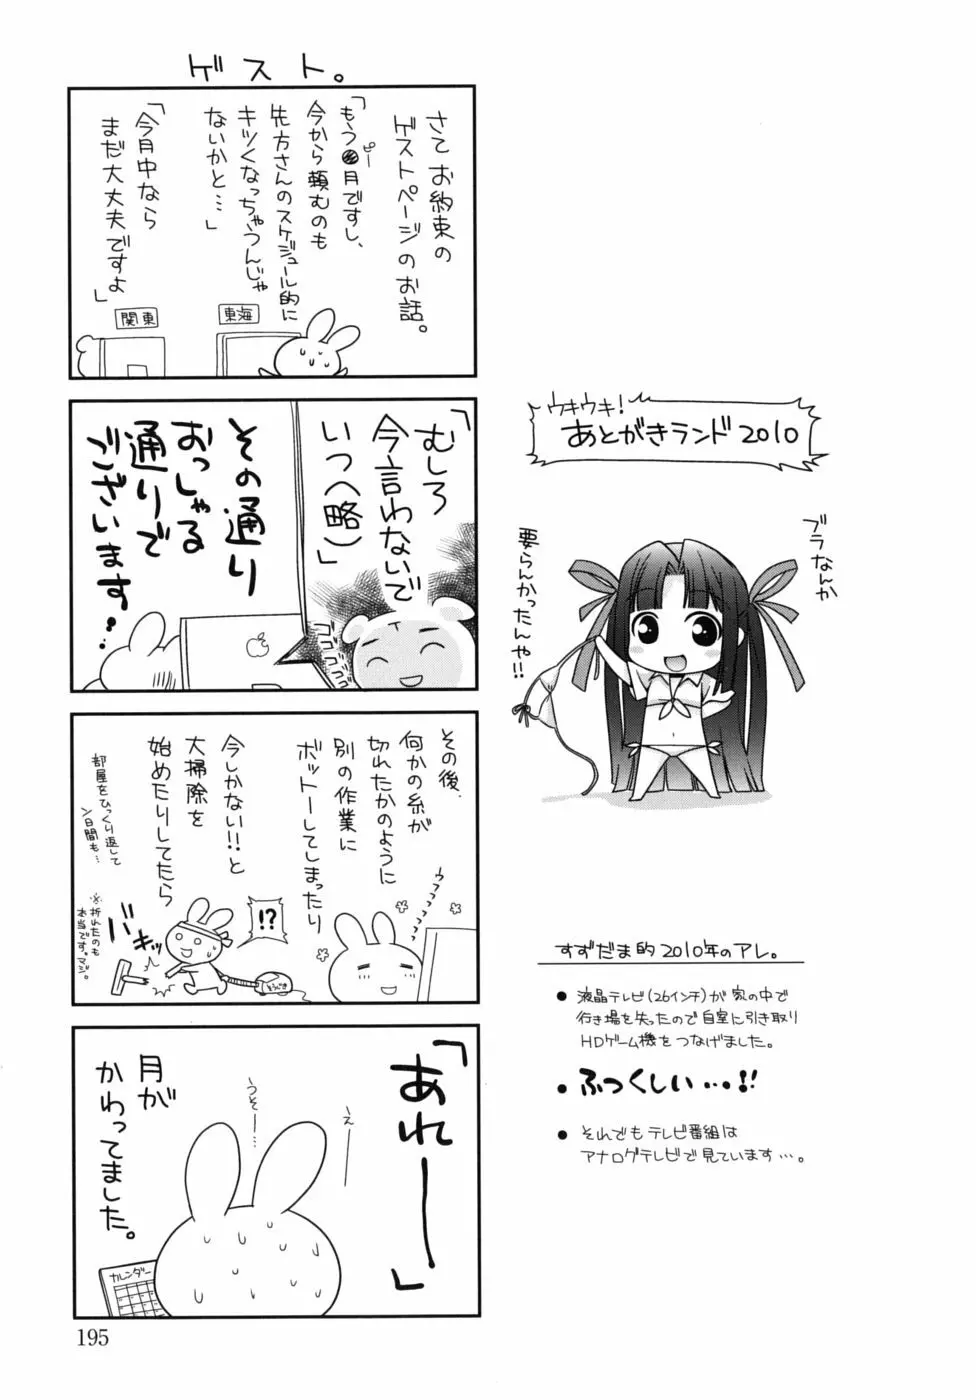 ウキウキ!
あとがきランド2010
ブラなんか
要らんかったんや!!
すずだま的2010年のアレ。
● 液晶テレビ(26インチ)が家の中で
行き場を失ったので自室に引き取り
HDゲーム機をつなげました。
● ふつくしい…!!
● それでもテレビ番組は
アナログテレビで見ています…。
ゲスト。
さてお約束の
ゲストページのお話。
「もう●月ですし、
ピー
今から頼むのも
先方さんのスケジュール的に
キツくなっちゃうんじゃ
ないかと…」
「今月中なら
まだ大丈夫ですよ」
東海
関東
「むしろ
今言わないで
いつ(略)」
ゴゴゴゴ
その通り
おっしゃる
通りで
ございます!
その後、
何かの糸が
切れたかのように
別の作業に
ボットーしてしまったり
ウフフフフフ
今しかない!!と
大掃除を
始めたりしてたら
部屋をひっくり返して
ン日間も…
!?
バキッ
そうじき
※折れたのも
本当です。マジ。
「あれーーー」
えー
うそー…
月が
かわってました。
カレンダー
195